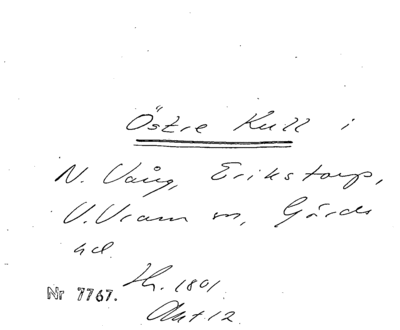 Östre Kull i
N. Vång, Erikstorp,
V. Vram m, Gärds
hd.
Nr 7767. Hr. 1801
Akt 12